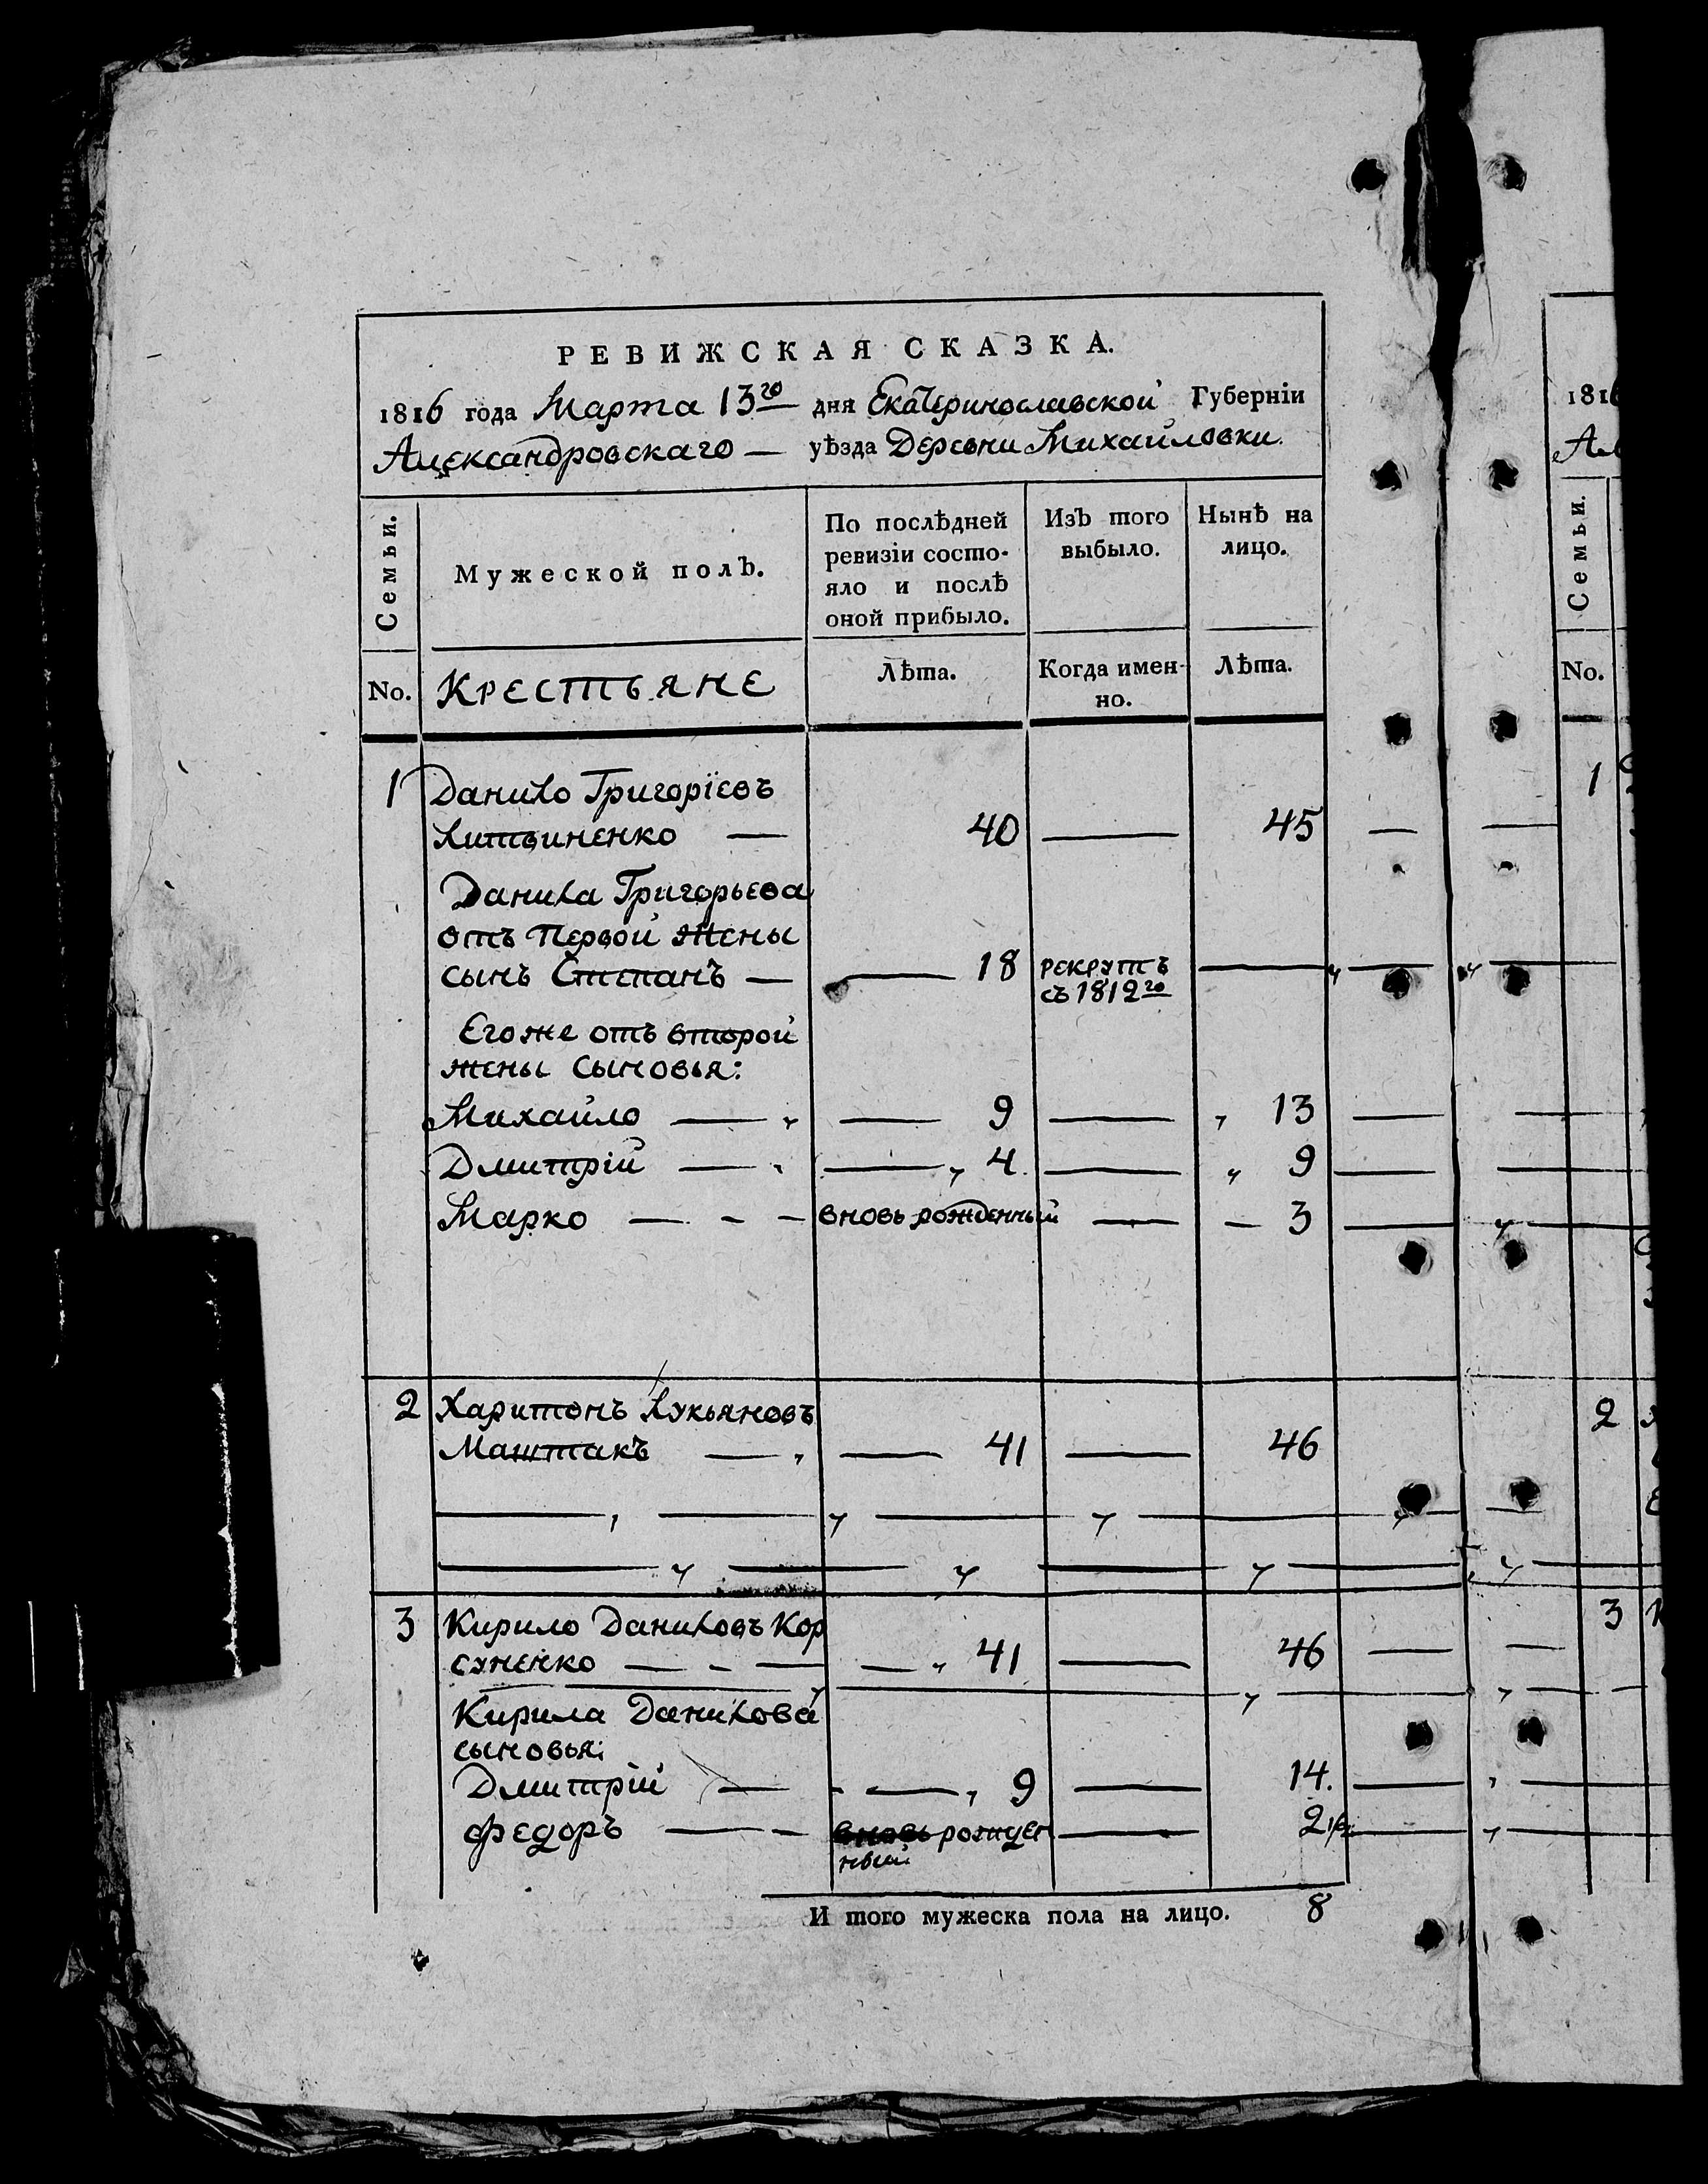 РЕВИЖСКАЯ СКАЗКА.
1816 года Марта 13го дня Екатеринославской Губерніи
Александровскаго — уѣзда Деревни Михайловки.
Семьи.
Мужеской полъ.
По послѣдней
ревизіи состо-
яло и послѣ
оной прибыло.
Изъ того
выбыло.
Нынѣ на
лицо.
No.
Крестьяне
Лѣта.
Когда имен-
но.
Лѣта.
1 Данило Григоріевъ
Литвиненко — 40 — 45 —
Данила Григорьева
отъ Первой Жены
сынъ Степанъ — — 18 рекрутъ
съ 1812го
Егоже отъ второй
жены сыновья:
Михайло — — 9 — 13 —
Дмитрій — — 4 — 9 —
Марко — - - вновь рожденный — — 3 —
2 Харитонъ Лукьяновъ
Маштакъ — — 41 — 46
3 Кирило Даниловъ Кор
суненко — - — — 41 — 46 —
Кирила Данилова
сыновья:
Дмитрій — - — 9 — 14. —
Федоръ — — вновь рожден — 2 1/2 —
ный
И того мужеска пола на лицо. 8
181
Семьи.
No.
1
2
3